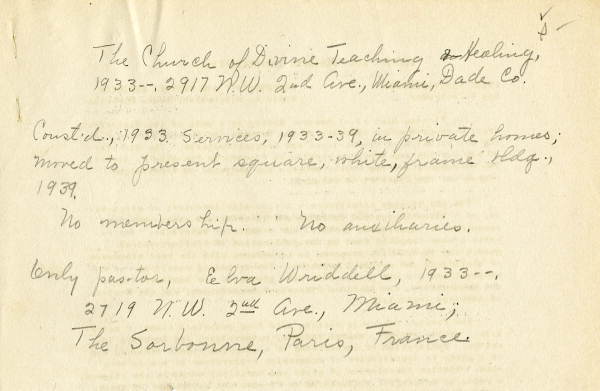 The Church of Divine Teaching & Healing,
1933--. 2917 N.W. 2nd Ave., Miami, Dade Co.
Const'd., 1933. Services, 1933-39, in private homes;
moved to present square, white, frame bldg.,
1939.
No membership. No auxiliaries.
Only pastor, Elva Wriddell, 1933--.
2719 N.W. 2nd Ave., Miami;
The Sorbonne, Paris, France